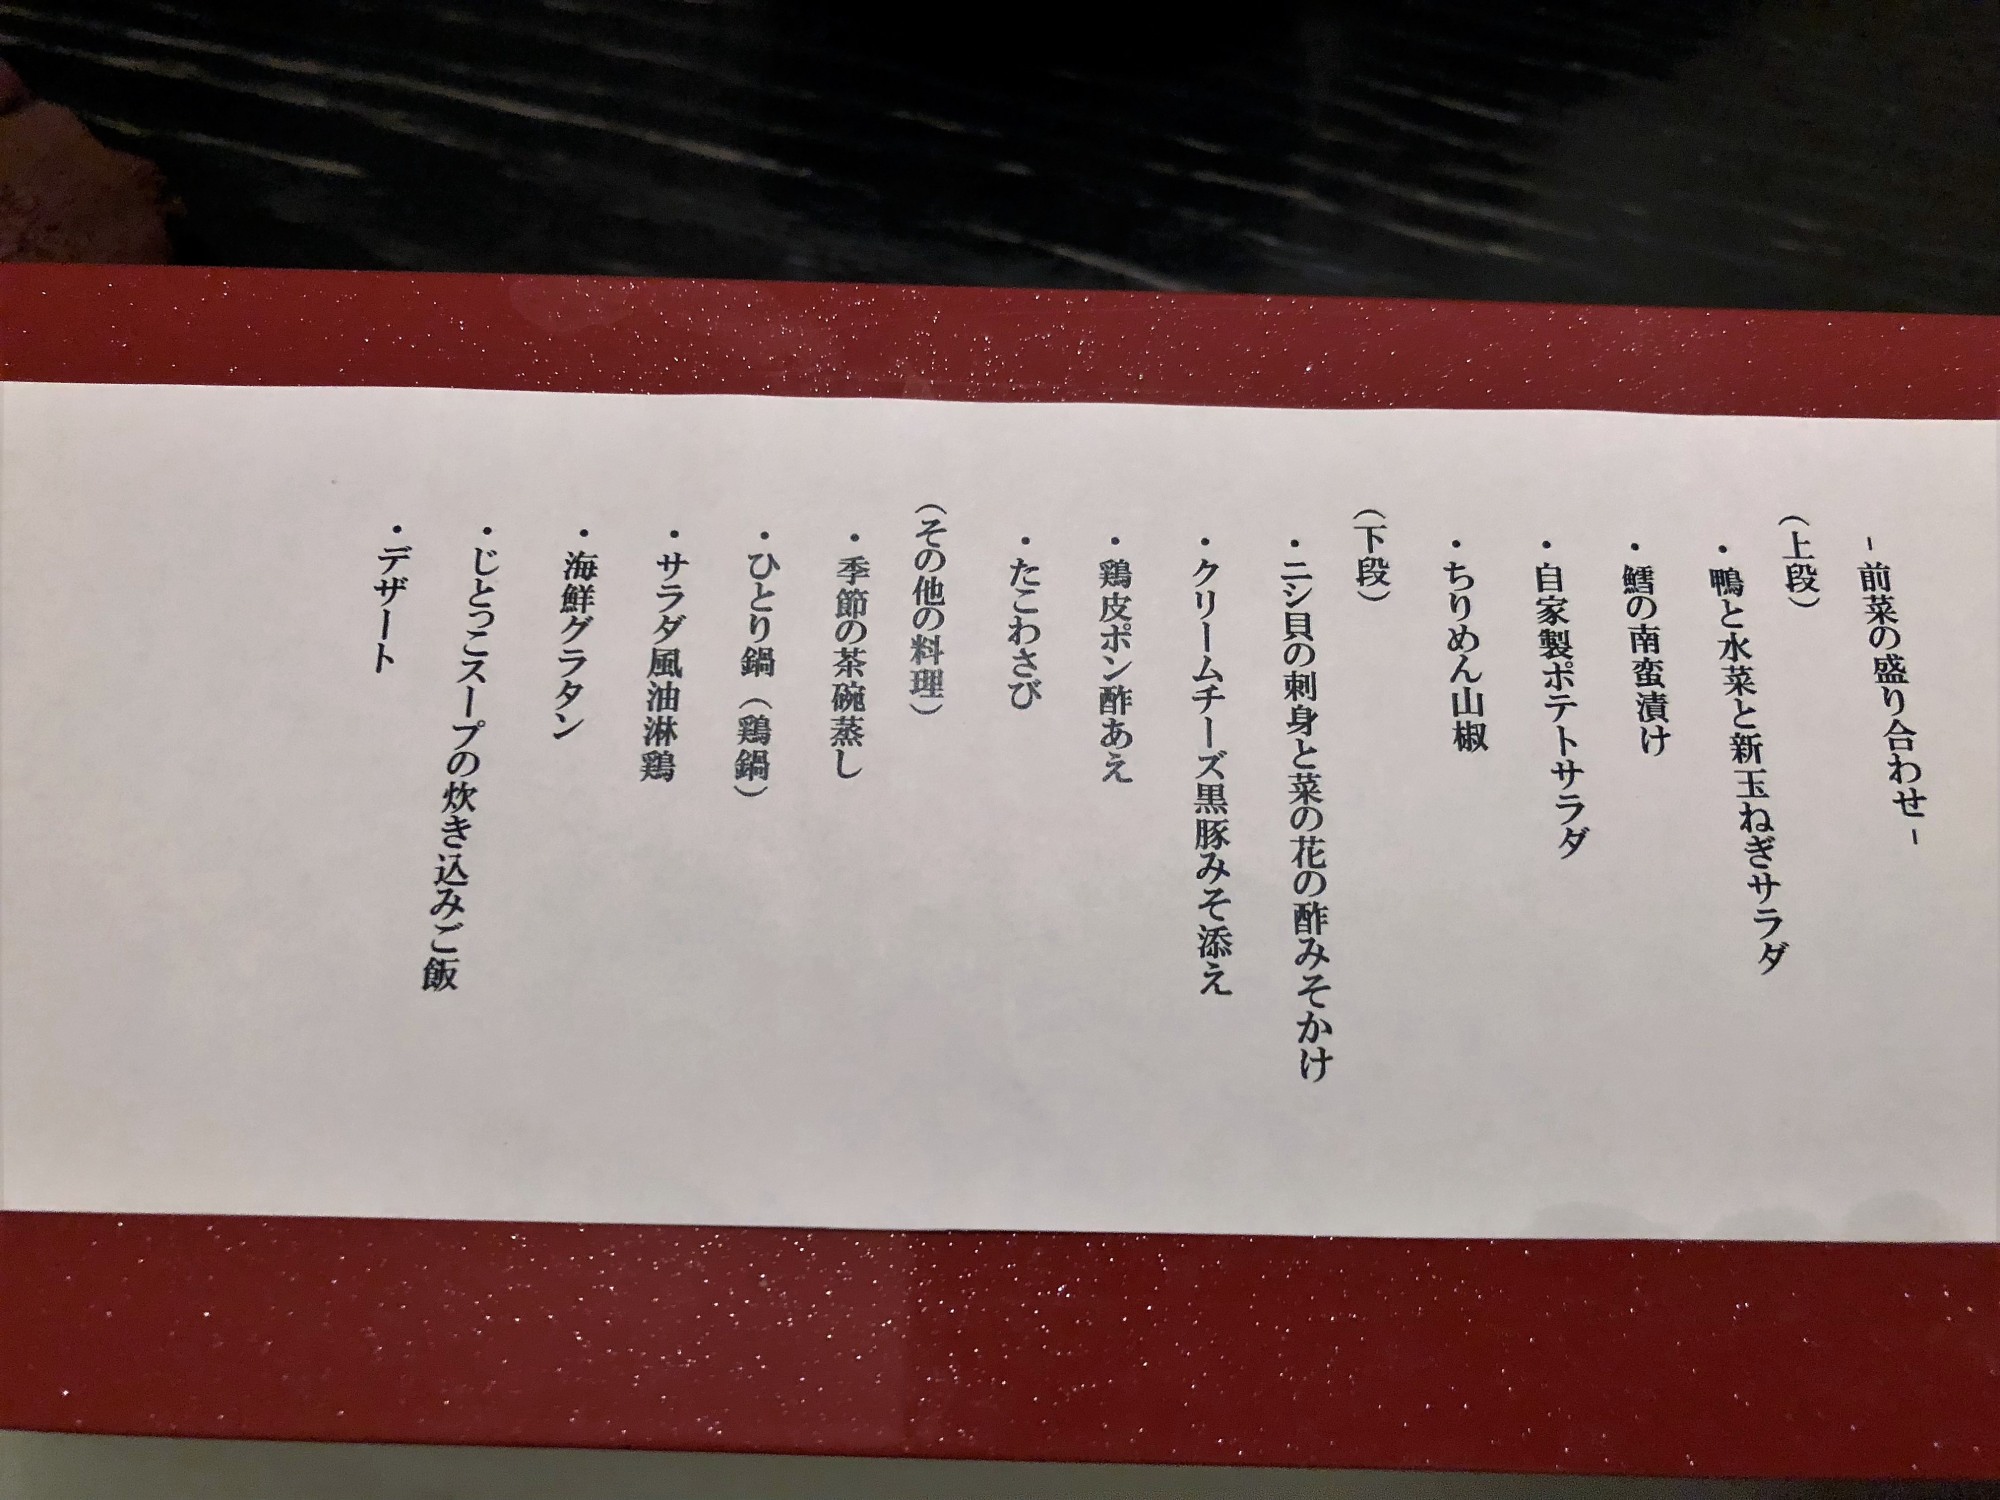 -前菜の盛り合わせ-
(上段)
・鴨と水菜と新玉ねぎサラダ
・鱈の南蛮漬け
・自家製ポテトサラダ
・ちりめん山椒
(下段)
・ニシ貝の刺身と菜の花の酢みそかけ
・クリームチーズ黒豚みそ添え
・鶏皮ポン酢あえ
・たこわさび
(その他の料理)
・季節の茶碗蒸し
・ひとり鍋(鶏鍋)
・サラダ風油淋鶏
・海鮮グラタン
・じとっこスープの炊き込みご飯
・デザート